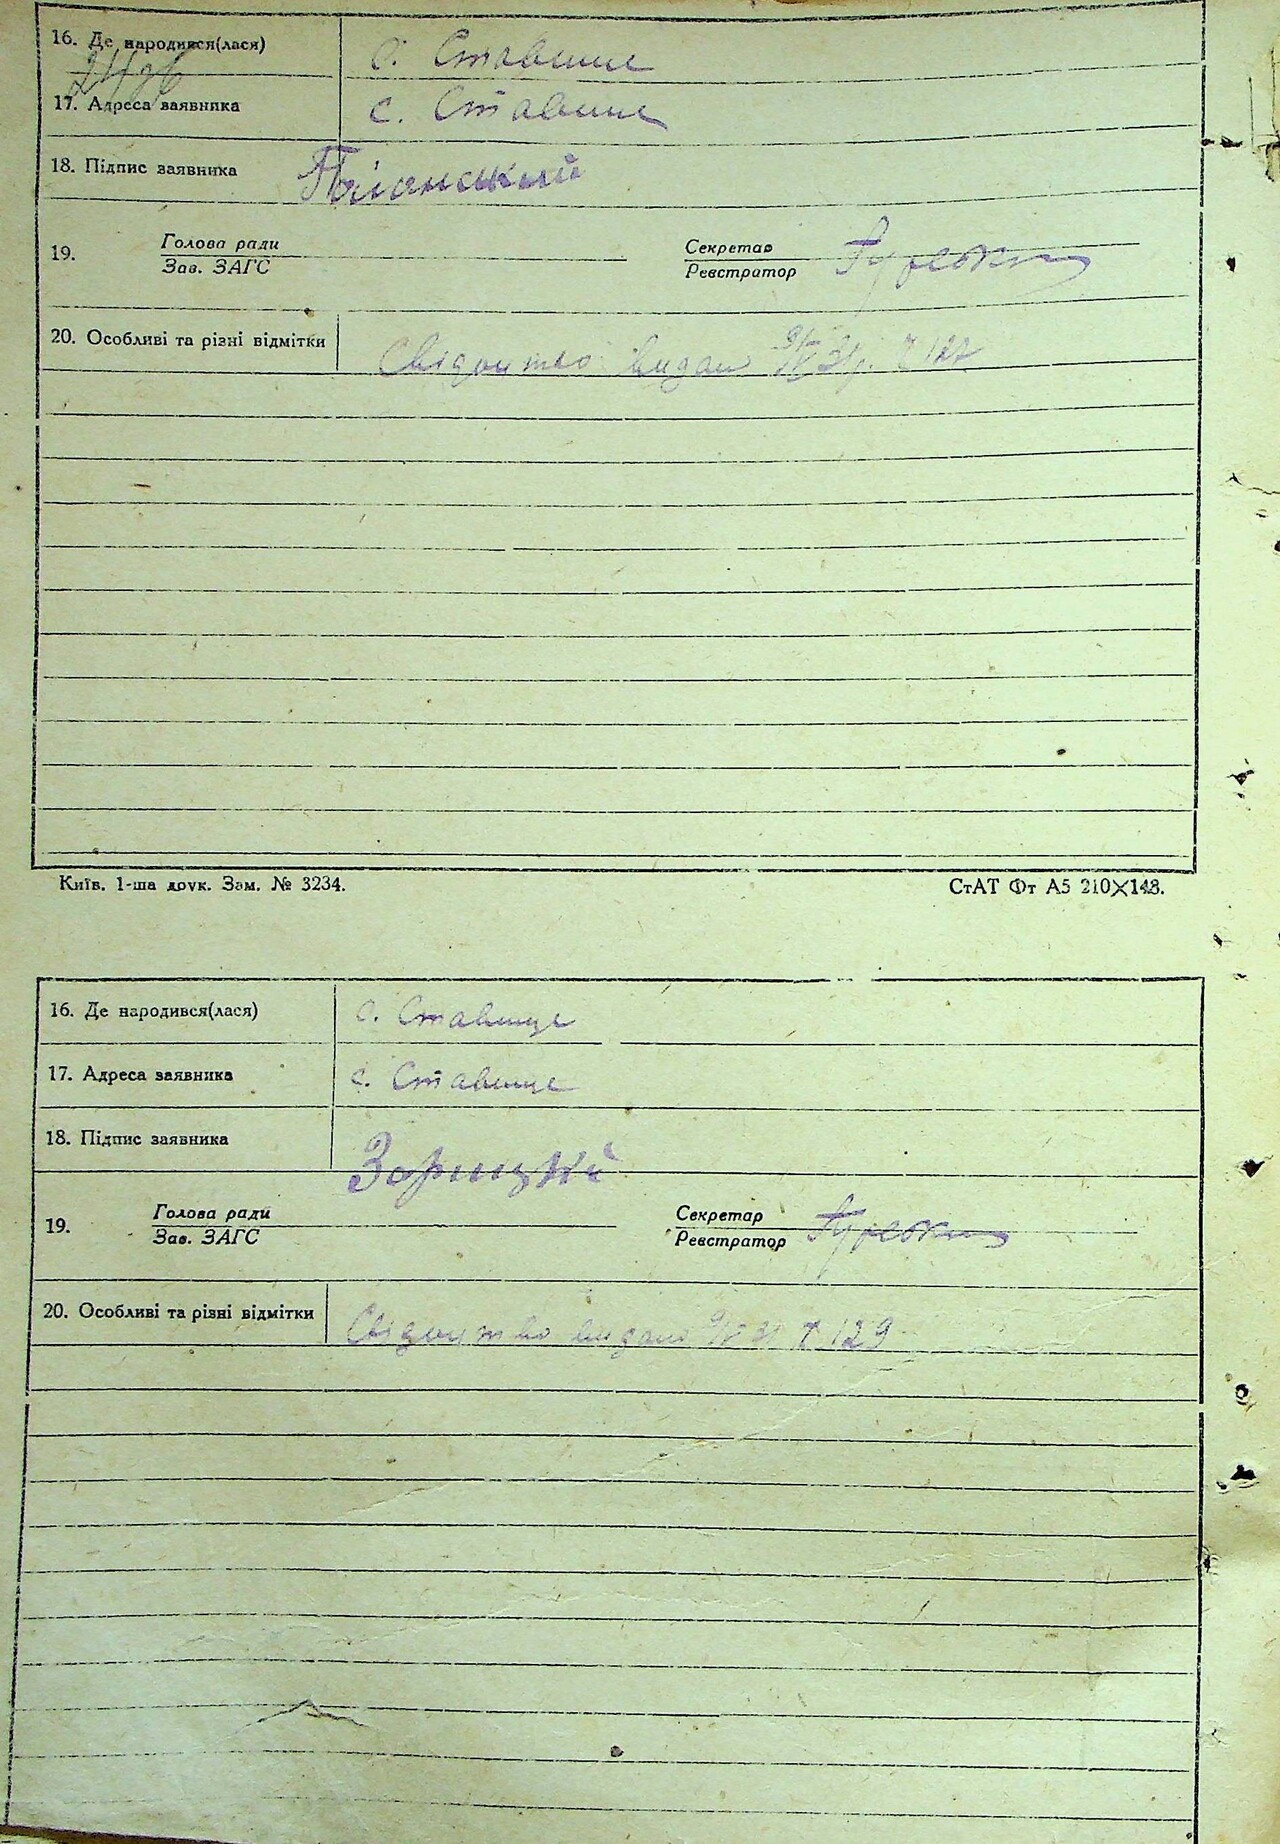 16. Де народився(лася) с. Ставище
17. Адреса заявника с. Ставище
18. Підпис заявника
19. Голова ради Секретар
Зав. ЗАГС Реєстратор
20. Особливі та різні відмітки Свідоцтво видан 9/IV 31р. № 127
Київ. 1-ша друк. Зам. № 3234. СтАТ Фт А5 210×148.
16. Де народився(лася) с. Ставище
17. Адреса заявника с. Ставище
18. Підпис заявника Зорицкі
19. Голова ради Секретар
Зав. ЗАГС Реєстратор
20. Особливі та різні відмітки Свідоцтво видано 9/IV 31 № 129